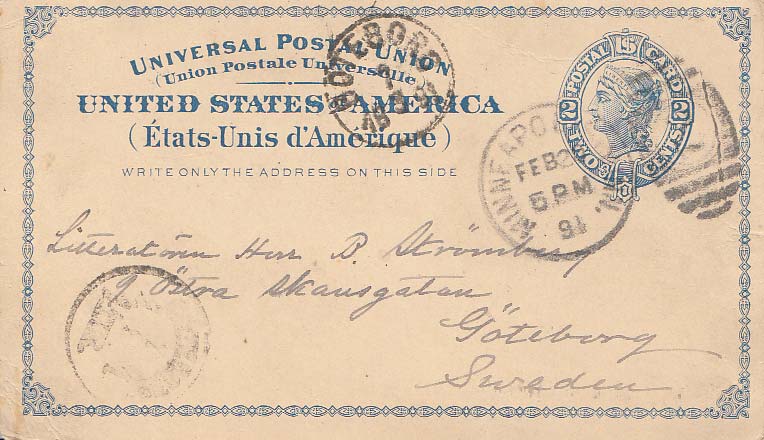 UNIVERSAL POSTAL UNION
(Union Postale Universelle)
UNITED STATES OF AMERICA
(États-Unis d'Amérique)
WRITE ONLY THE ADDRESS ON THIS SIDE
POSTAL CARD
U S
2 2
TWO CENTS
GÖTEBORG
MINNEAPO
FEB 2
5 PM
91
Litteratören Herr P. Strömberg
9 Östra Skansgatan
Göteborg
Sweden